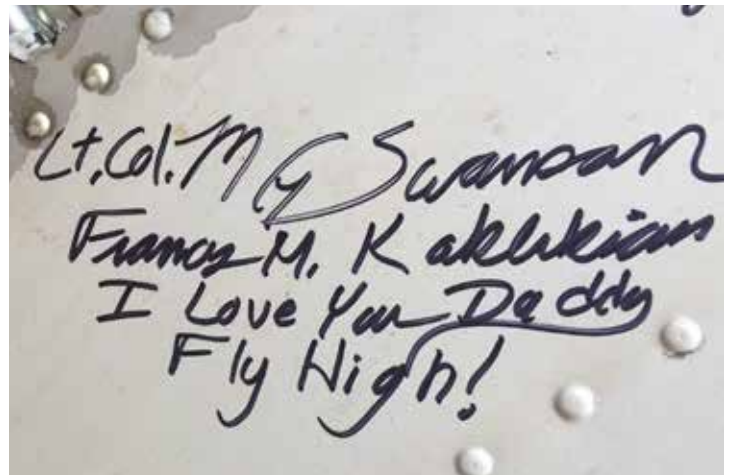 Lt. Col. M G Swanson
Frances M. Kaklikian
I Love You Daddy
Fly High!